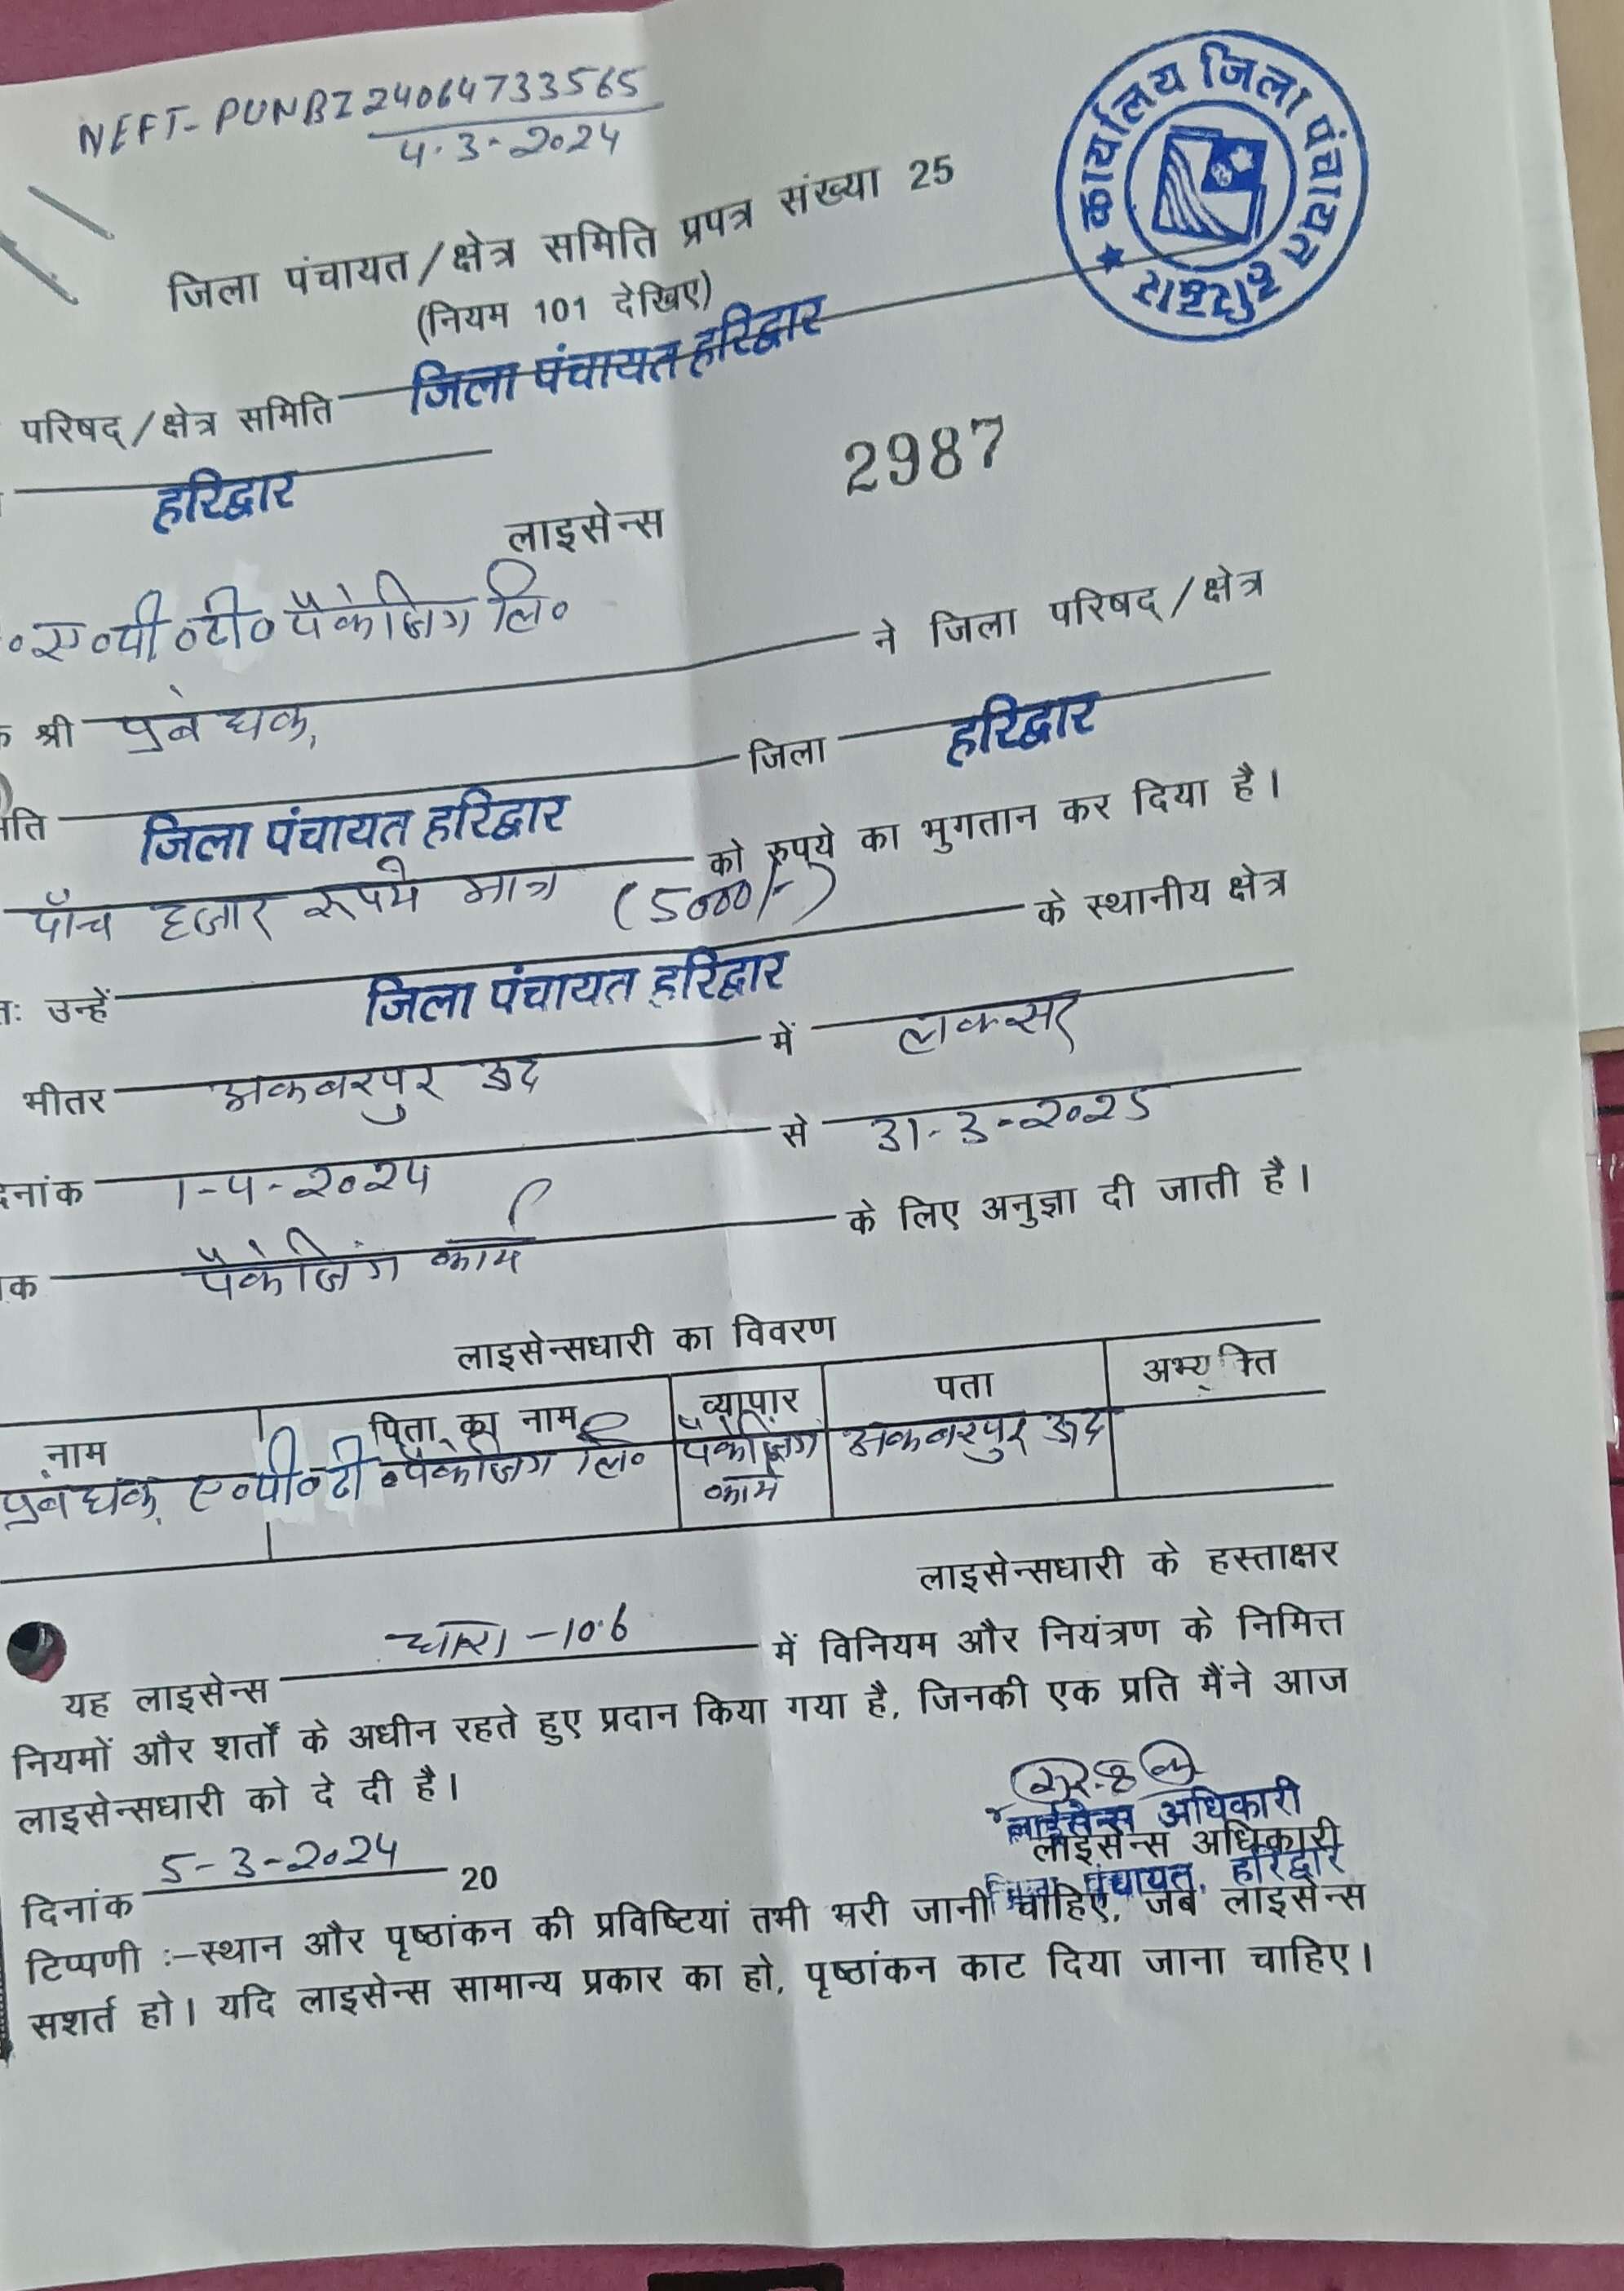 NEFT- PUNBI24064733565
4.3.2024
कार्यालय जिला पंचायत हरिद्वार
जिला पंचायत/क्षेत्र समिति प्रपत्र संख्या 25
(नियम 101 देखिए)
परिषद्/क्षेत्र समिति जिला पंचायत हरिद्वार
हरिद्वार
2987
लाइसेन्स
ए०पी०टी० पैकेजिंग लि०
श्री प्रबंधक, ने जिला परिषद्/क्षेत्र
मति जिला पंचायत हरिद्वार जिला हरिद्वार
पाँच हजार रूपये मात्र (5000/-) को रुपये का भुगतान कर दिया है।
तः उन्हें जिला पंचायत हरिद्वार के स्थानीय क्षेत्र
भीतर अकबरपुर ऊद में लक्सर
दिनांक 1-4-2024 से 31-3-2025
क पैकेजिंग कार्य के लिए अनुज्ञा दी जाती है।
लाइसेन्सधारी का विवरण
नाम पिता का नाम व्यापार पता अभ्युक्ति
प्रबंधक, ए०पी०टी० पैकेजिंग लि० पैकेजिंग कार्य अकबरपुर ऊद
लाइसेन्सधारी के हस्ताक्षर
यह लाइसेन्स धारा-106 में विनियम और नियंत्रण के निमित्त
नियमों और शर्तों के अधीन रहते हुए प्रदान किया गया है, जिनकी एक प्रति मैंने आज
लाइसेन्सधारी को दे दी है।
लाईसेन्स अधिकारी
लाइसेन्स अधिकारी
जिला पंचायत, हरिद्वार
दिनांक 5-3-2024 20
टिप्पणी :–स्थान और पृष्ठांकन की प्रविष्टियां तभी भरी जानी चाहिए, जब लाइसेन्स
सशर्त हो। यदि लाइसेन्स सामान्य प्रकार का हो, पृष्ठांकन काट दिया जाना चाहिए।